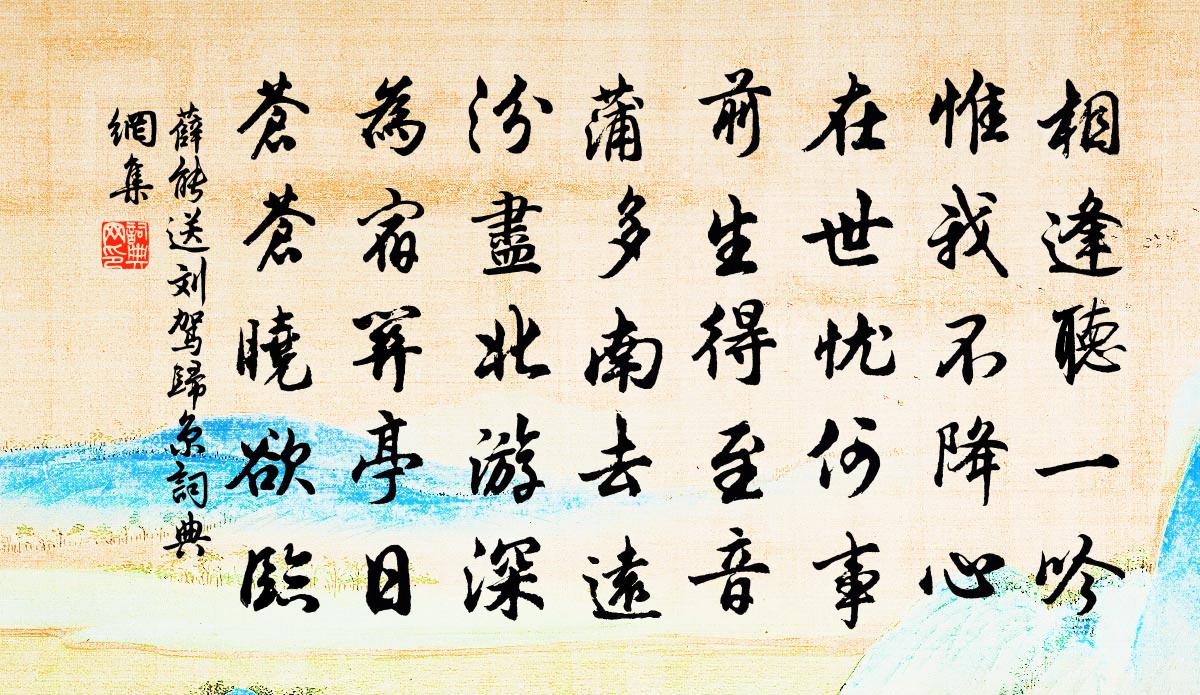 相逢聽一吟
惟我不降心
在世忧何事
前生得至音
蒲多南去遠
汾盡北游深
為宿關亭日
蒼蒼曉欲臨
薛能送刘驾歸京詞典
網集
詞典网印